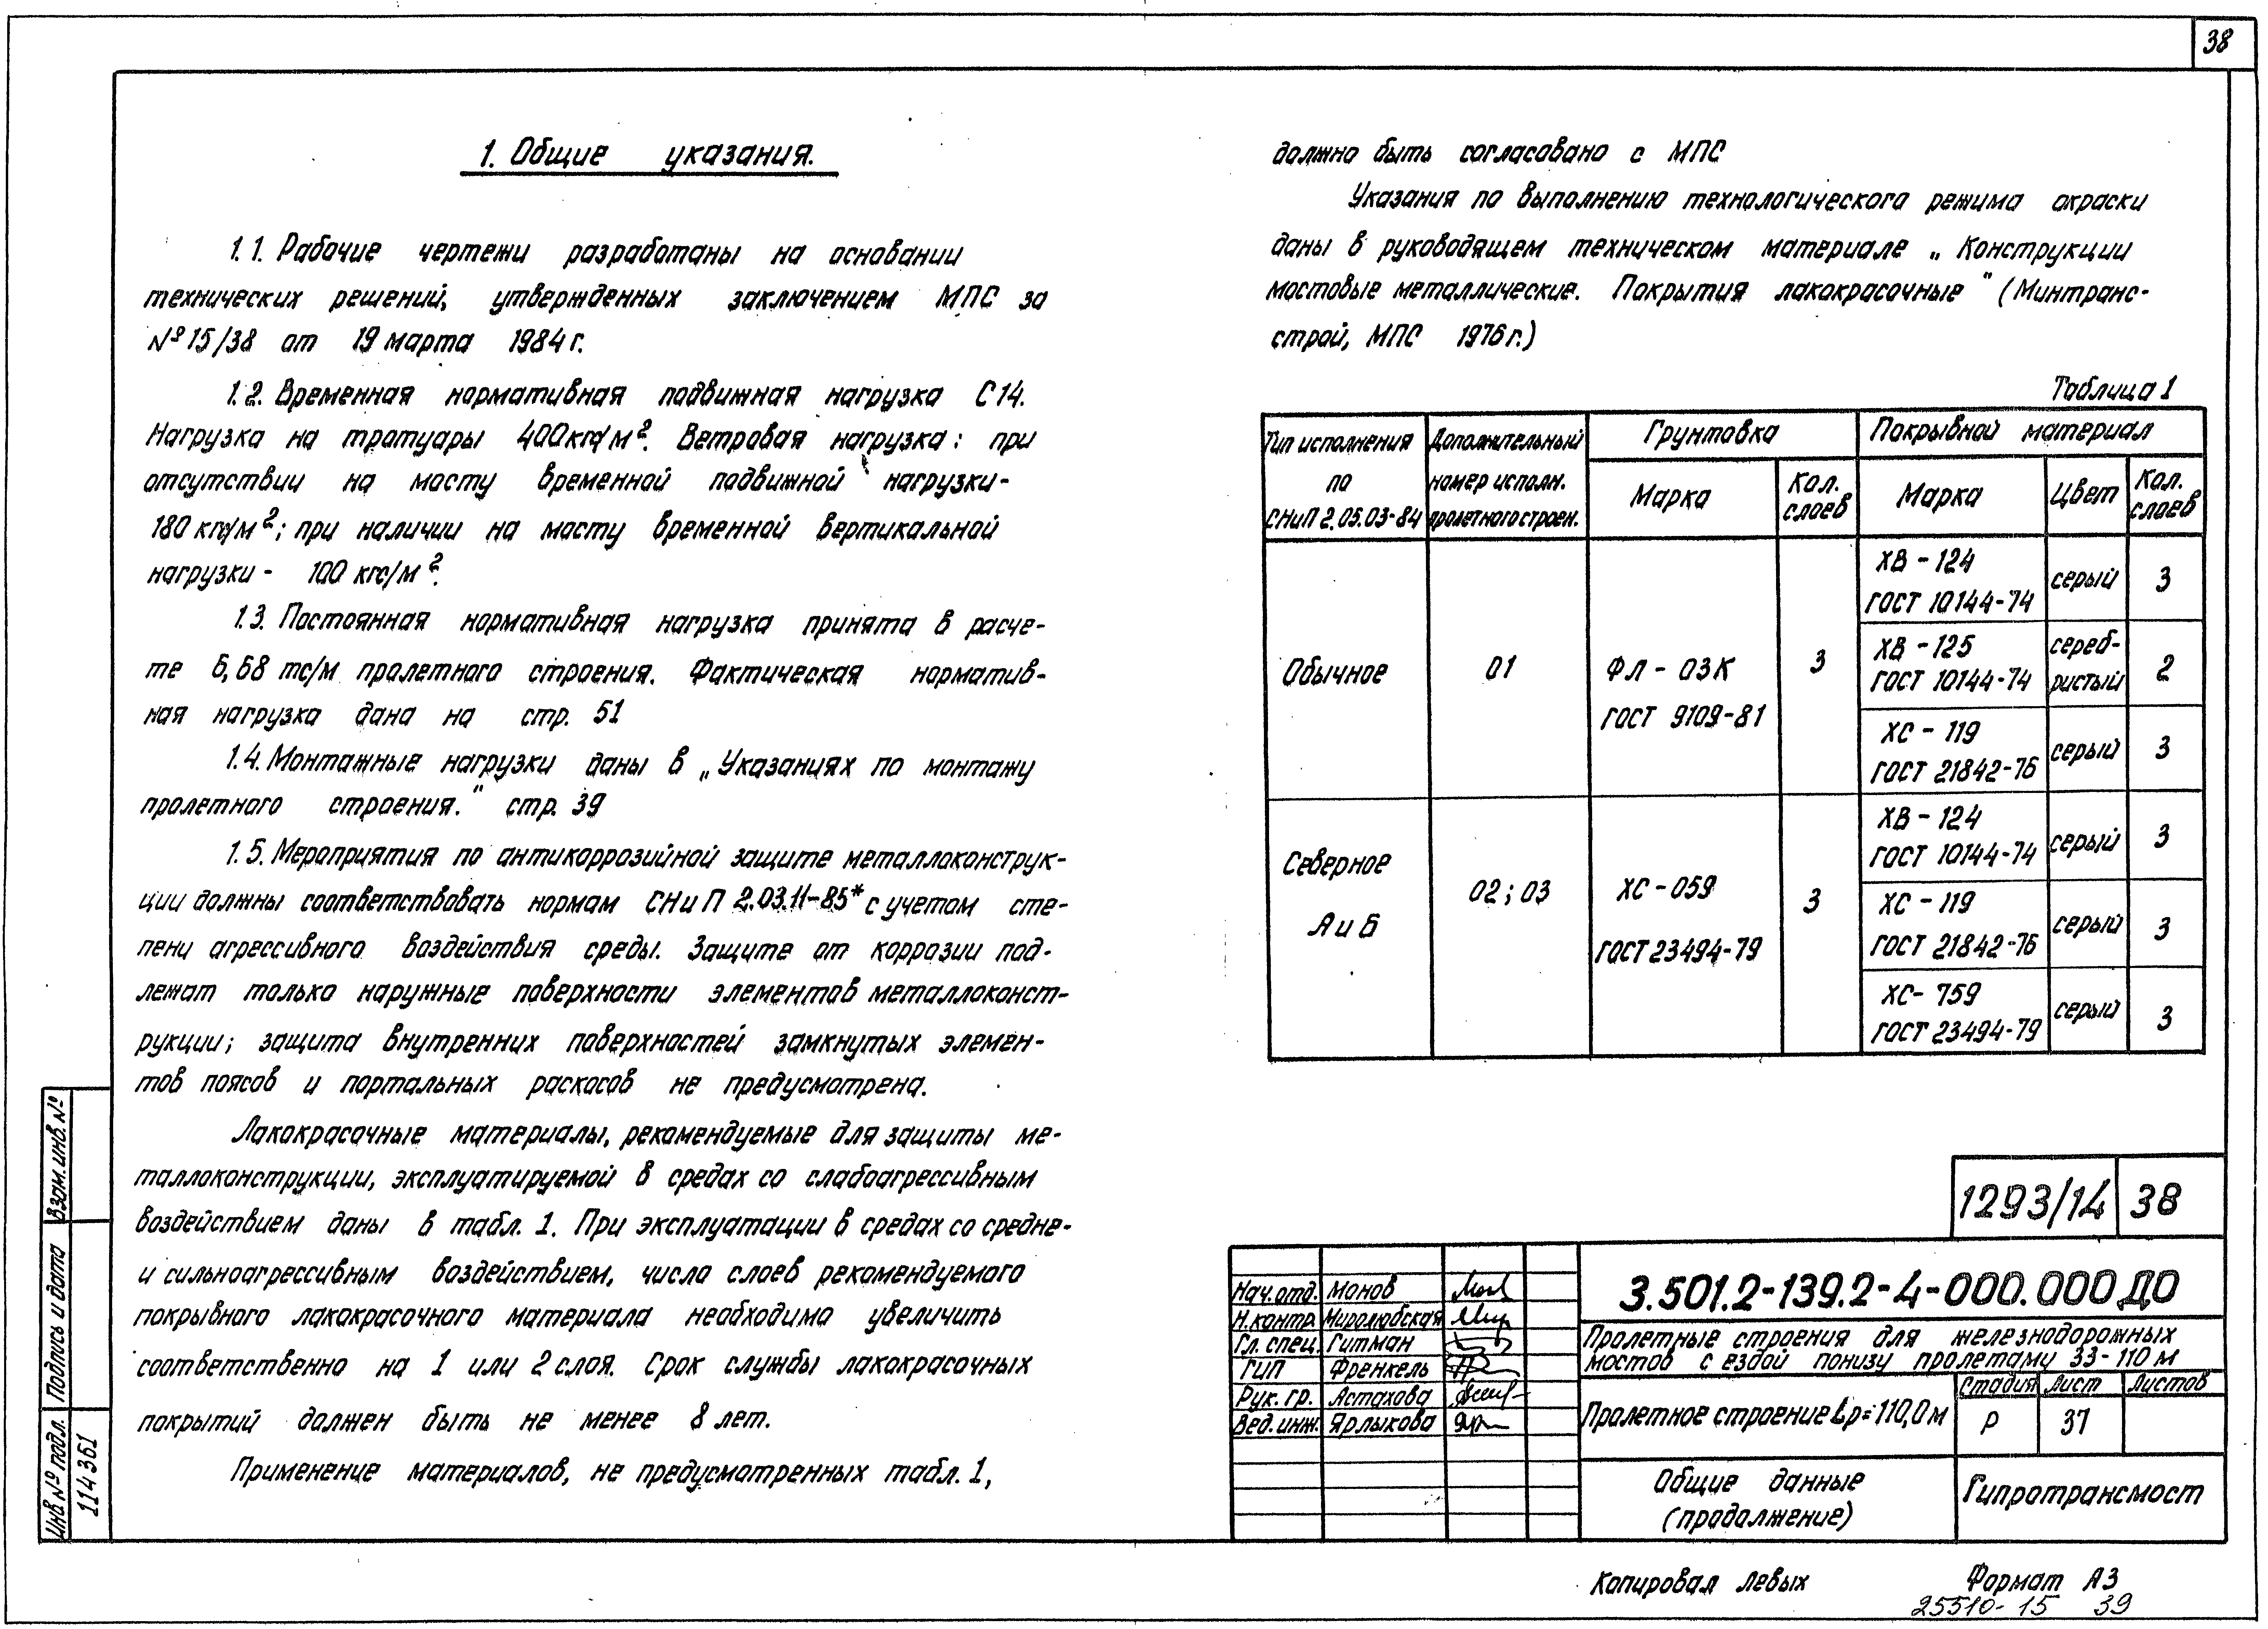 38
1. Общие указания.
1.1. Рабочие чертежи разработаны на основании
технических решений, утвержденных заключением МПС за
№ 15/38 от 19 марта 1984 г.
1.2. Временная нормативная подвижная нагрузка С14.
Нагрузка на тротуары 400 кгс/м². Ветровая нагрузка: при
отсутствии на мосту временной подвижной нагрузки-
180 кгс/м²; при наличии на мосту временной вертикальной
нагрузки - 100 кгс/м².
1.3. Постоянная нормативная нагрузка принята в расче-
те 6,68 тс/м пролетного строения. Фактическая норматив-
ная нагрузка дана на стр. 51
1.4. Монтажные нагрузки даны в „Указаниях по монтажу
пролетного строения." стр. 39
1.5. Мероприятия по антикоррозийной защите металлоконструк-
ции должны соответствовать нормам СНиП 2.03.11-85* с учетом сте-
пени агрессивного воздействия среды. Защите от коррозии под-
лежат только наружные поверхности элементов металлоконст-
рукции; защита внутренних поверхностей замкнутых элемен-
тов поясов и портальных раскосов не предусмотрена.
Лакокрасочные материалы, рекомендуемые для защиты ме-
таллоконструкции, эксплуатируемой в средах со слабоагрессивным
воздействием даны в табл. 1. При эксплуатации в средах со средне-
и сильноагрессивным воздействием, число слоев рекомендуемого
покрывного лакокрасочного материала необходимо увеличить
соответственно на 1 или 2 слоя. Срок службы лакокрасочных
покрытий должен быть не менее 8 лет.
Применение материалов, не предусмотренных табл. 1,
должно быть согласовано с МПС
Указания по выполнению технологического режима окраски
даны в руководящем техническом материале „Конструкции
мостовые металлические. Покрытия лакокрасочные" (Минтранс-
строй, МПС 1976 г.)
Таблица 1
Тип исполнения
по
СНиП 2.05.03-84
Дополнительный
номер исполн.
пролетного строен.
Грунтовка
Покрывной материал
Марка
Кол.
слоев
Марка
Цвет
Кол.
слоев
Обычное
01
ФЛ - 03К
ГОСТ 9109-81
3
ХВ - 124
ГОСТ 10144-74
серый
3
ХВ - 125
ГОСТ 10144-74
сереб-
ристый
2
ХС - 119
ГОСТ 21842-76
серый
3
Северное
А и Б
02; 03
ХС - 059
ГОСТ 23494-79
3
ХВ - 124
ГОСТ 10144-74
серый
3
ХС - 119
ГОСТ 21842-76
серый
3
ХС - 759
ГОСТ 23494-79
серый
3
1293/14 38
Нач.отд. Монов
Н.контр. Миролюбская
Гл. спец. Гитман
ГИП Френкель
Рук. гр. Астахова
Вед. инж. Ярлыкова
3.501.2-139.2-4-000.000 ДО
Пролетные строения для железнодорожных
мостов с ездой понизу пролетами 33-110 м
Пролетное строение Lр=110,0 м
Стадия Лист Листов
Р 37
Общие данные
(продолжение)
Гипротрансмост
Взам. инв. №
Подпись и дата
Инв № подл.
114361
Копировал Левых
Формат А3
25510-15 39